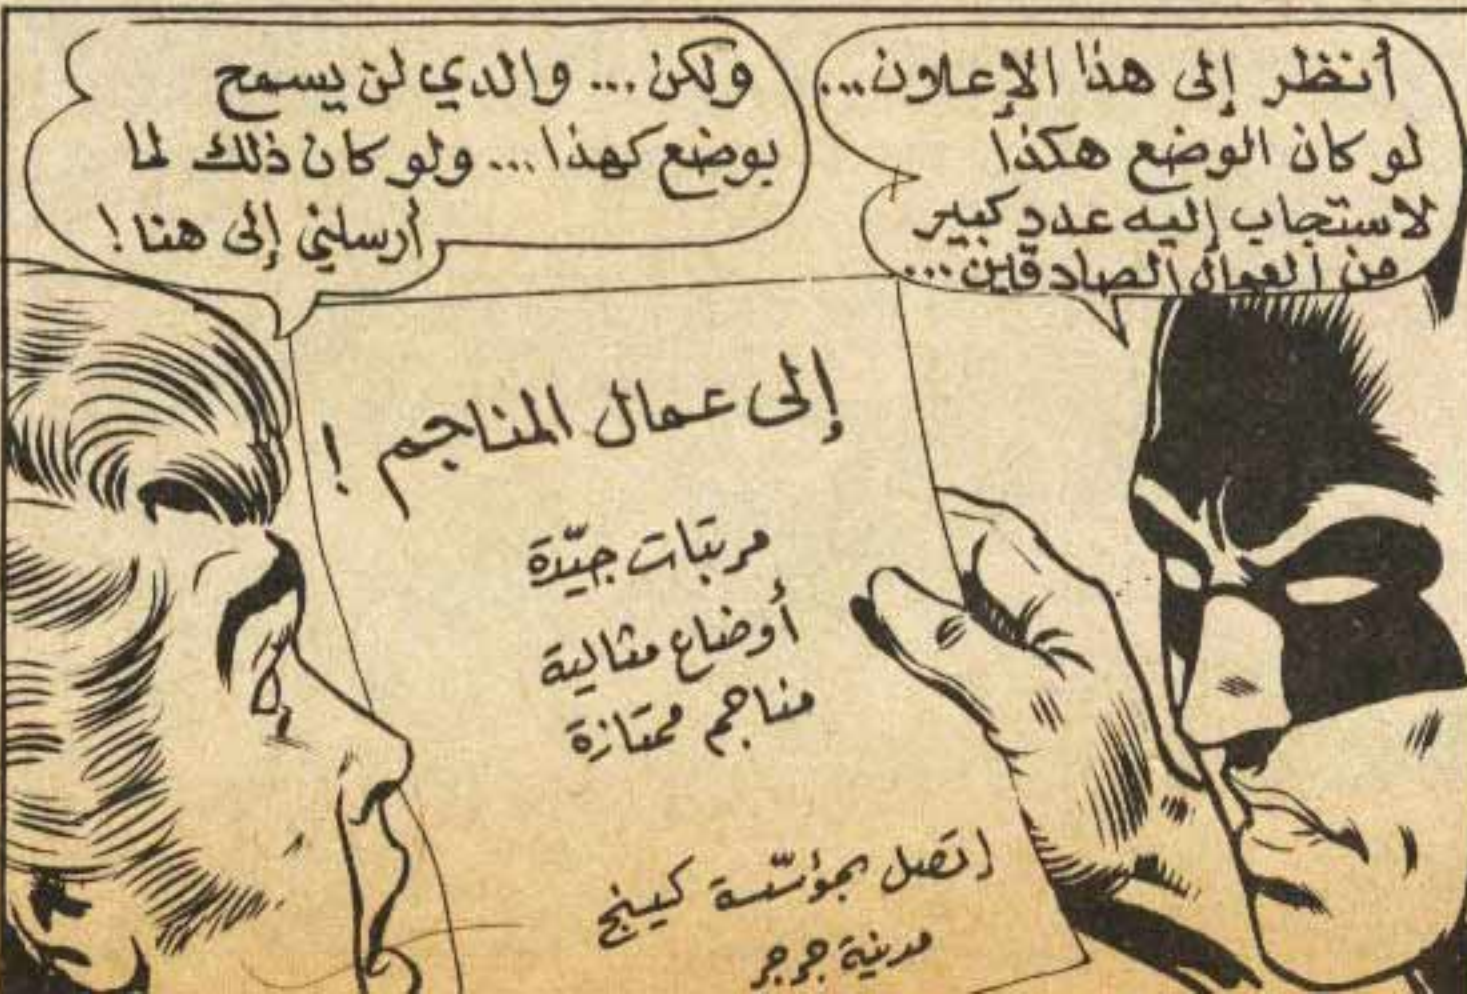 أنظر إلى هذا الإعلان...
لو كان الوضع هكذا
لاستجاب إليه عدد كبير
من العمال الصادقين...
ولكن... والدي لن يسمح
بوضع كهذا... ولو كان ذلك لما
أرسلني إلى هنا!
إلى عمال المناجم!
مرتبات جيّدة
أوضاع مثالية
مناجم ممتازة
إتصل بمؤسّسة كينج
مدينة جرجر